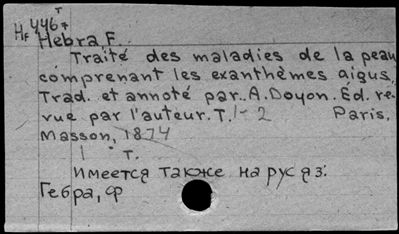 Hf 446 т
7
Hebra F.
Traité des maladies de la peau
comprenant les exanthèmes aigus.
Trad. et annoté par. A. Doyon. Éd. re-
vue par l'auteur. T. 1-2 Paris,
Masson, 1874
1 т.
Имеется также на рус яз:
Гебра, Ф